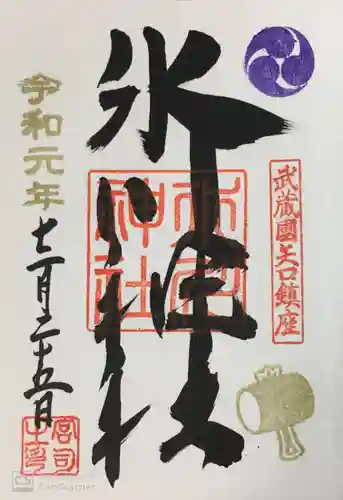 武蔵國矢口鎮座
氷川神社
氷川
神社
令和元年
十二月二十五日
宮司
CamScanner